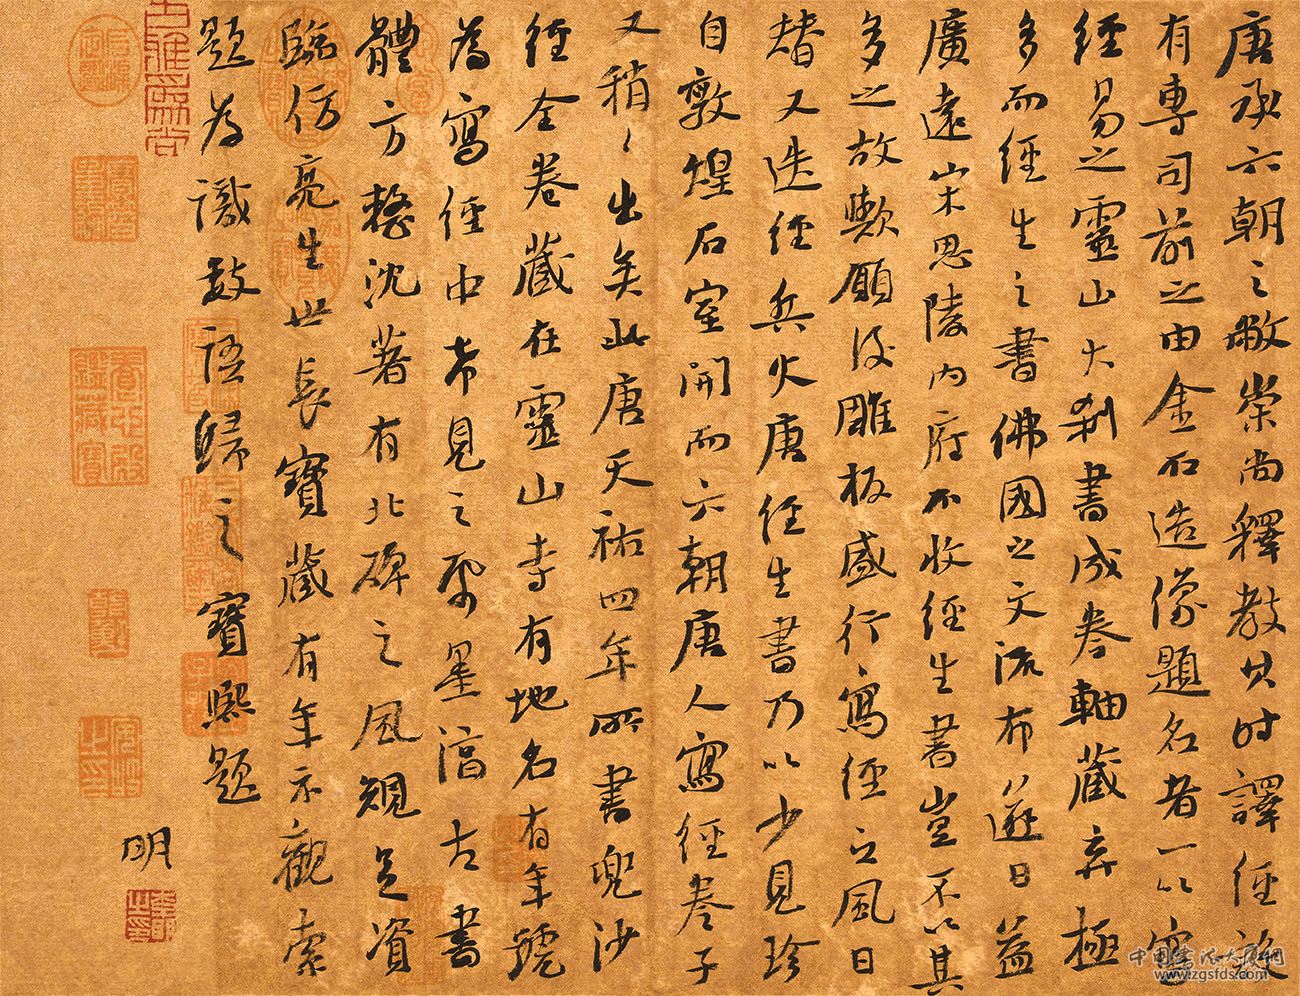 唐承六朝之敝崇尚釋教其时譯经設
有專司前之由金石造像題名者一以寫
經易之靈山大刹書成卷軸藏弆極
多而經生之書佛國之文流布日益
廣遠宋思陵内府不收经生書豈不以其
多之故歟願後雕板盛行寫经之風日
替又迭经兵火唐经生書乃以少見珍
自敦煌石室開而六朝唐人寫经卷子
又稍〻出矣此唐天祐四年所書兜沙
经全卷藏在靈山寺有地名有年號
為寫经中希見之星古書
體方整沈著有北碑之風規足資
臨仿亮生世長寶藏有年示觀索
題为識数語歸之寶熙題
明
www.zgsfds.com